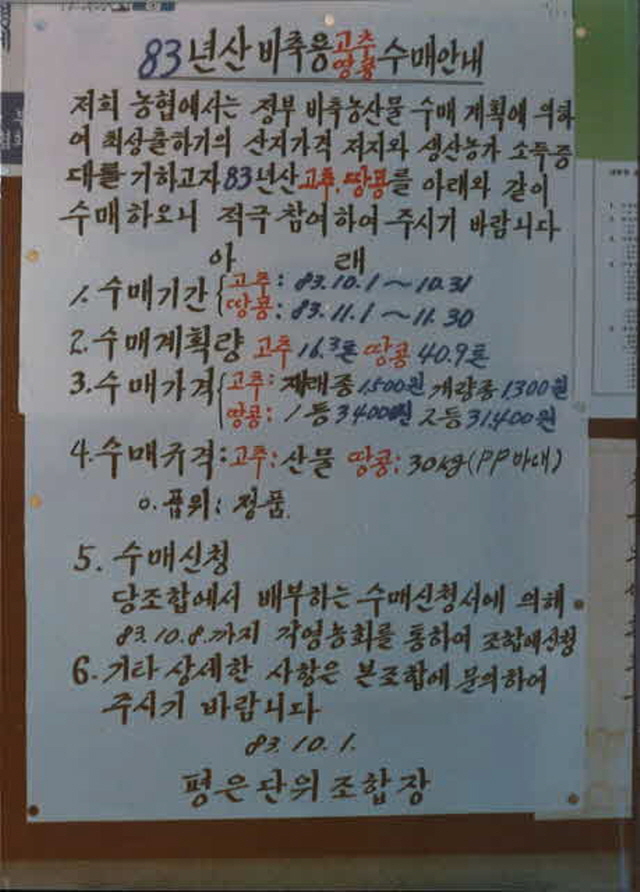 83년산 비축용 고추 땅콩 수매안내
저희 농협에서는 정부 비축농산물 수매 계획에 의하
여 최성출하기의 산지가격 저지와 생산농가 소득증
대를 기하고자 83년산 고추, 땅콩를 아래와 같이
수매하오니 적극 참여하여 주시기 바랍니다
아 래
1. 수매기간 { 고추: 83.10.1 ~ 10.31
땅콩: 83.11.1 ~ 11.30
2. 수매계획량 고추 16.3톤 땅콩 40.9톤
3. 수매가격 { 고추: 재래종 1,500원 개량종 1,300원
땅콩: 1등 34,000원 2등 31,400원
4. 수매규격: 고추: 산물 땅콩: 30kg (PP마대)
○. 품위: 정품.
5. 수매신청
당조합에서 배부하는 수매신청서에 의해
83.10.8.까지 각영농회를 통하여 조합에신청
6. 기타 상세한 사항은 본조합에 문의하여
주시기 바랍니다
83. 10. 1.
평은단위조합장